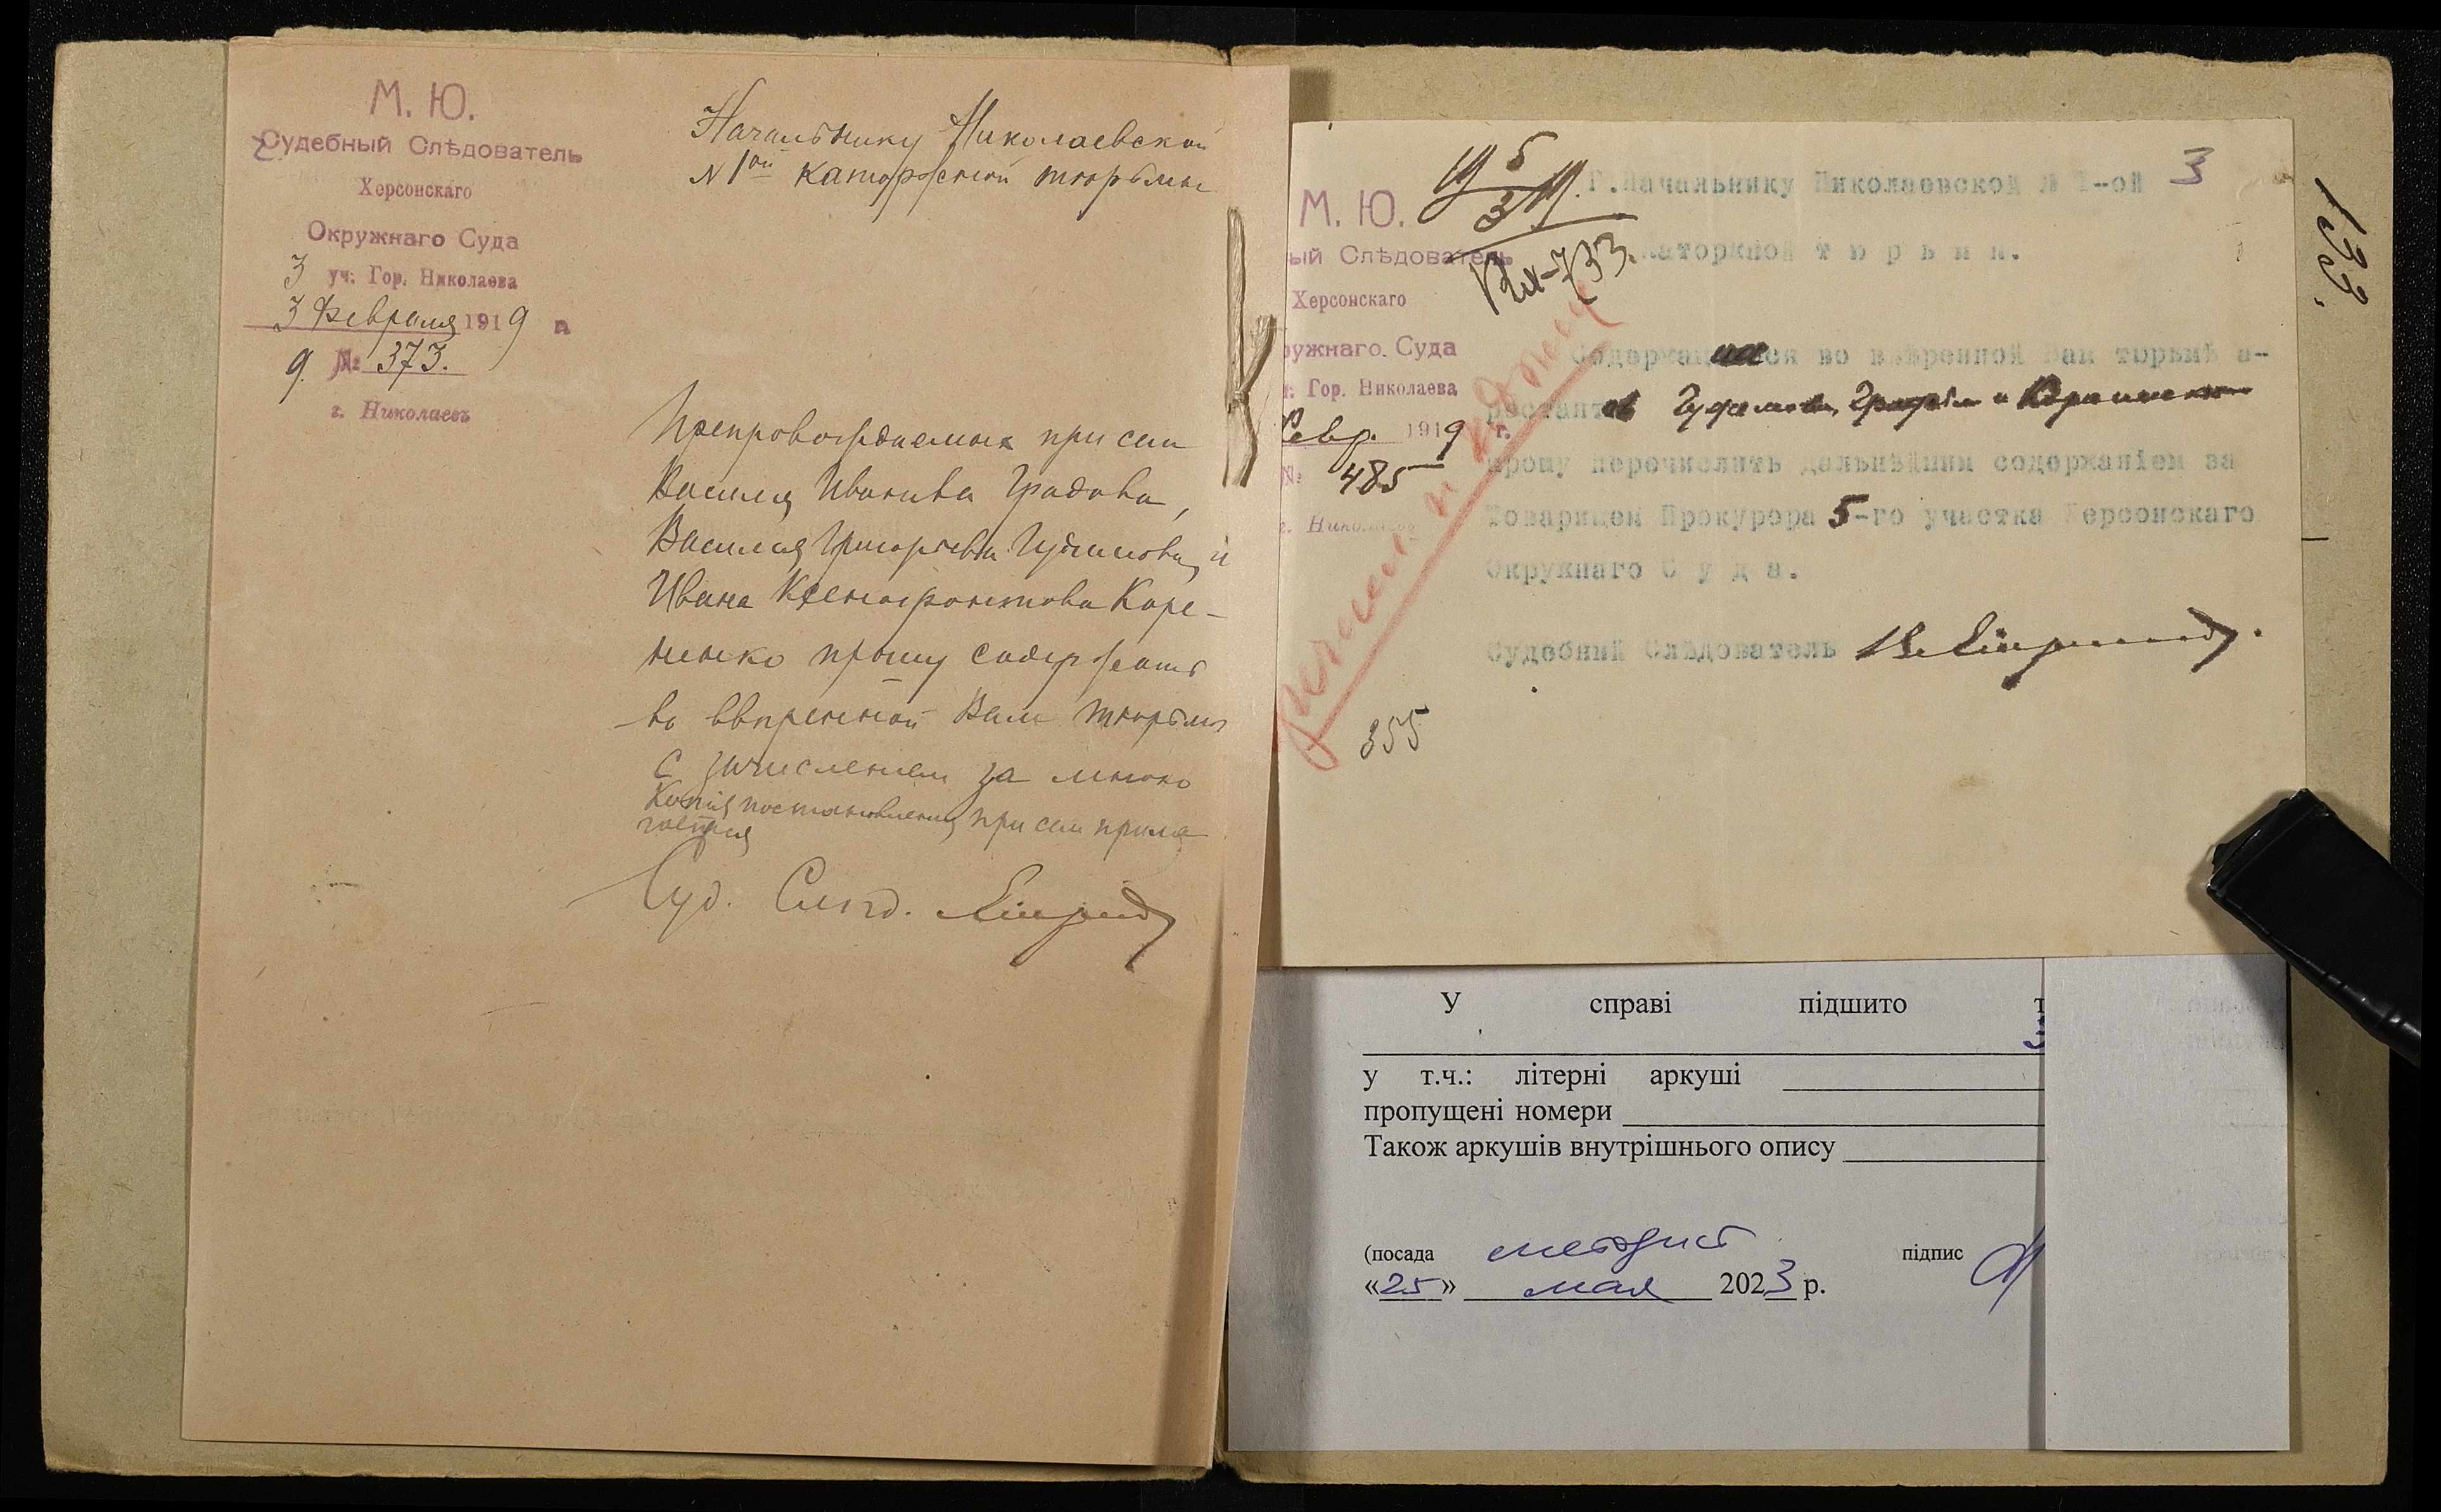 М. Ю.
Судебный Слѣдователь
Херсонскаго
Окружнаго Суда
3 уч. Гор. Николаева
3 Февраля 1919 г.
9. № 373.
г. Николаевъ
Начальнику Николаевской
N 1ой каторжной тюрьмы
Препровождаемых при сем
Василія Иванова Градова,
Василія Григорьева Гудимова и
Ивана Ксенофонтова Коре-
ненко прошу содержать
во ввѣренной Вам тюрьмѣ
с зачисленіем за мною
Копія постановленія при сем прила
гается
Суд. Слѣд.
3
133.
М. Ю.
ый Слѣдователь
Херсонскаго
ружнаго Суда
г. Гор. Николаева
Февр. 1919 г.
№ 485
г. Николаевъ
5
Вх-733.
Г.Начальнику Николаевской № 1-ой
каторжной т ю р ь м ы.
Содержащихся во ввѣренной Вам тюрьмѣ а-
рестантов Гудимова, и
прошу перечислить дальнѣйшим содержаніем за
Товарищем Прокурора 5-го участка Херсонскаго
Окружнаго С у д а.
Судебный Слѣдователь
355
У справі підшито
у т.ч.: літерні аркуші
пропущені номери
Також аркушів внутрішнього опису
(посада методист підпис
«25» мая 2023 р.